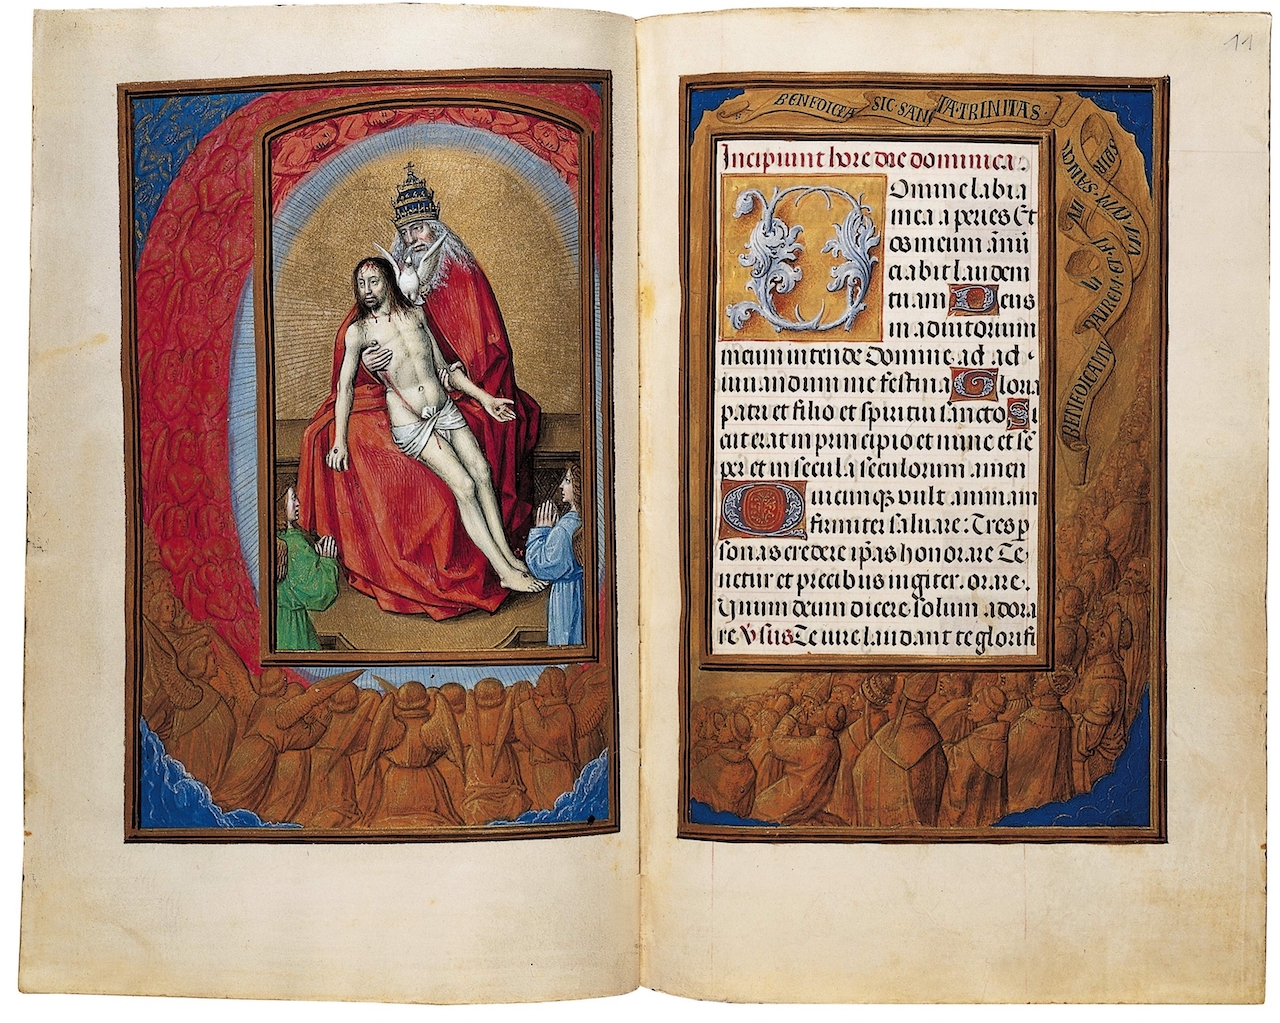 11
BENEDICTA SIC SANCTA TRINITAS
BENEDICAMUS PATREM ET FILIUM CUM SANCTO SPIR
Incipiunt hore die dominica
Domine labia
mea aperies Et
os meum ānū
ciabit laudem
tuam Deus
in adiutorium
meum intende Domine ad ad
iuuandum me festina Gloria
patri et filio et spiritui sancto Si
cut erat in principio et nunc et sē
per et in secula seculorum amen
Quicumqȝ vult animam
firmiter saluare: Tres p
sonas credere ip̄as honorare Te
netur et precibus iugiter orare
Vnum deum dicere solum adora
re v̄sus Te iure laudant te glorifi